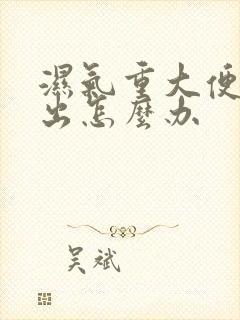 濕氣重大便
出怎麼办
吴斌